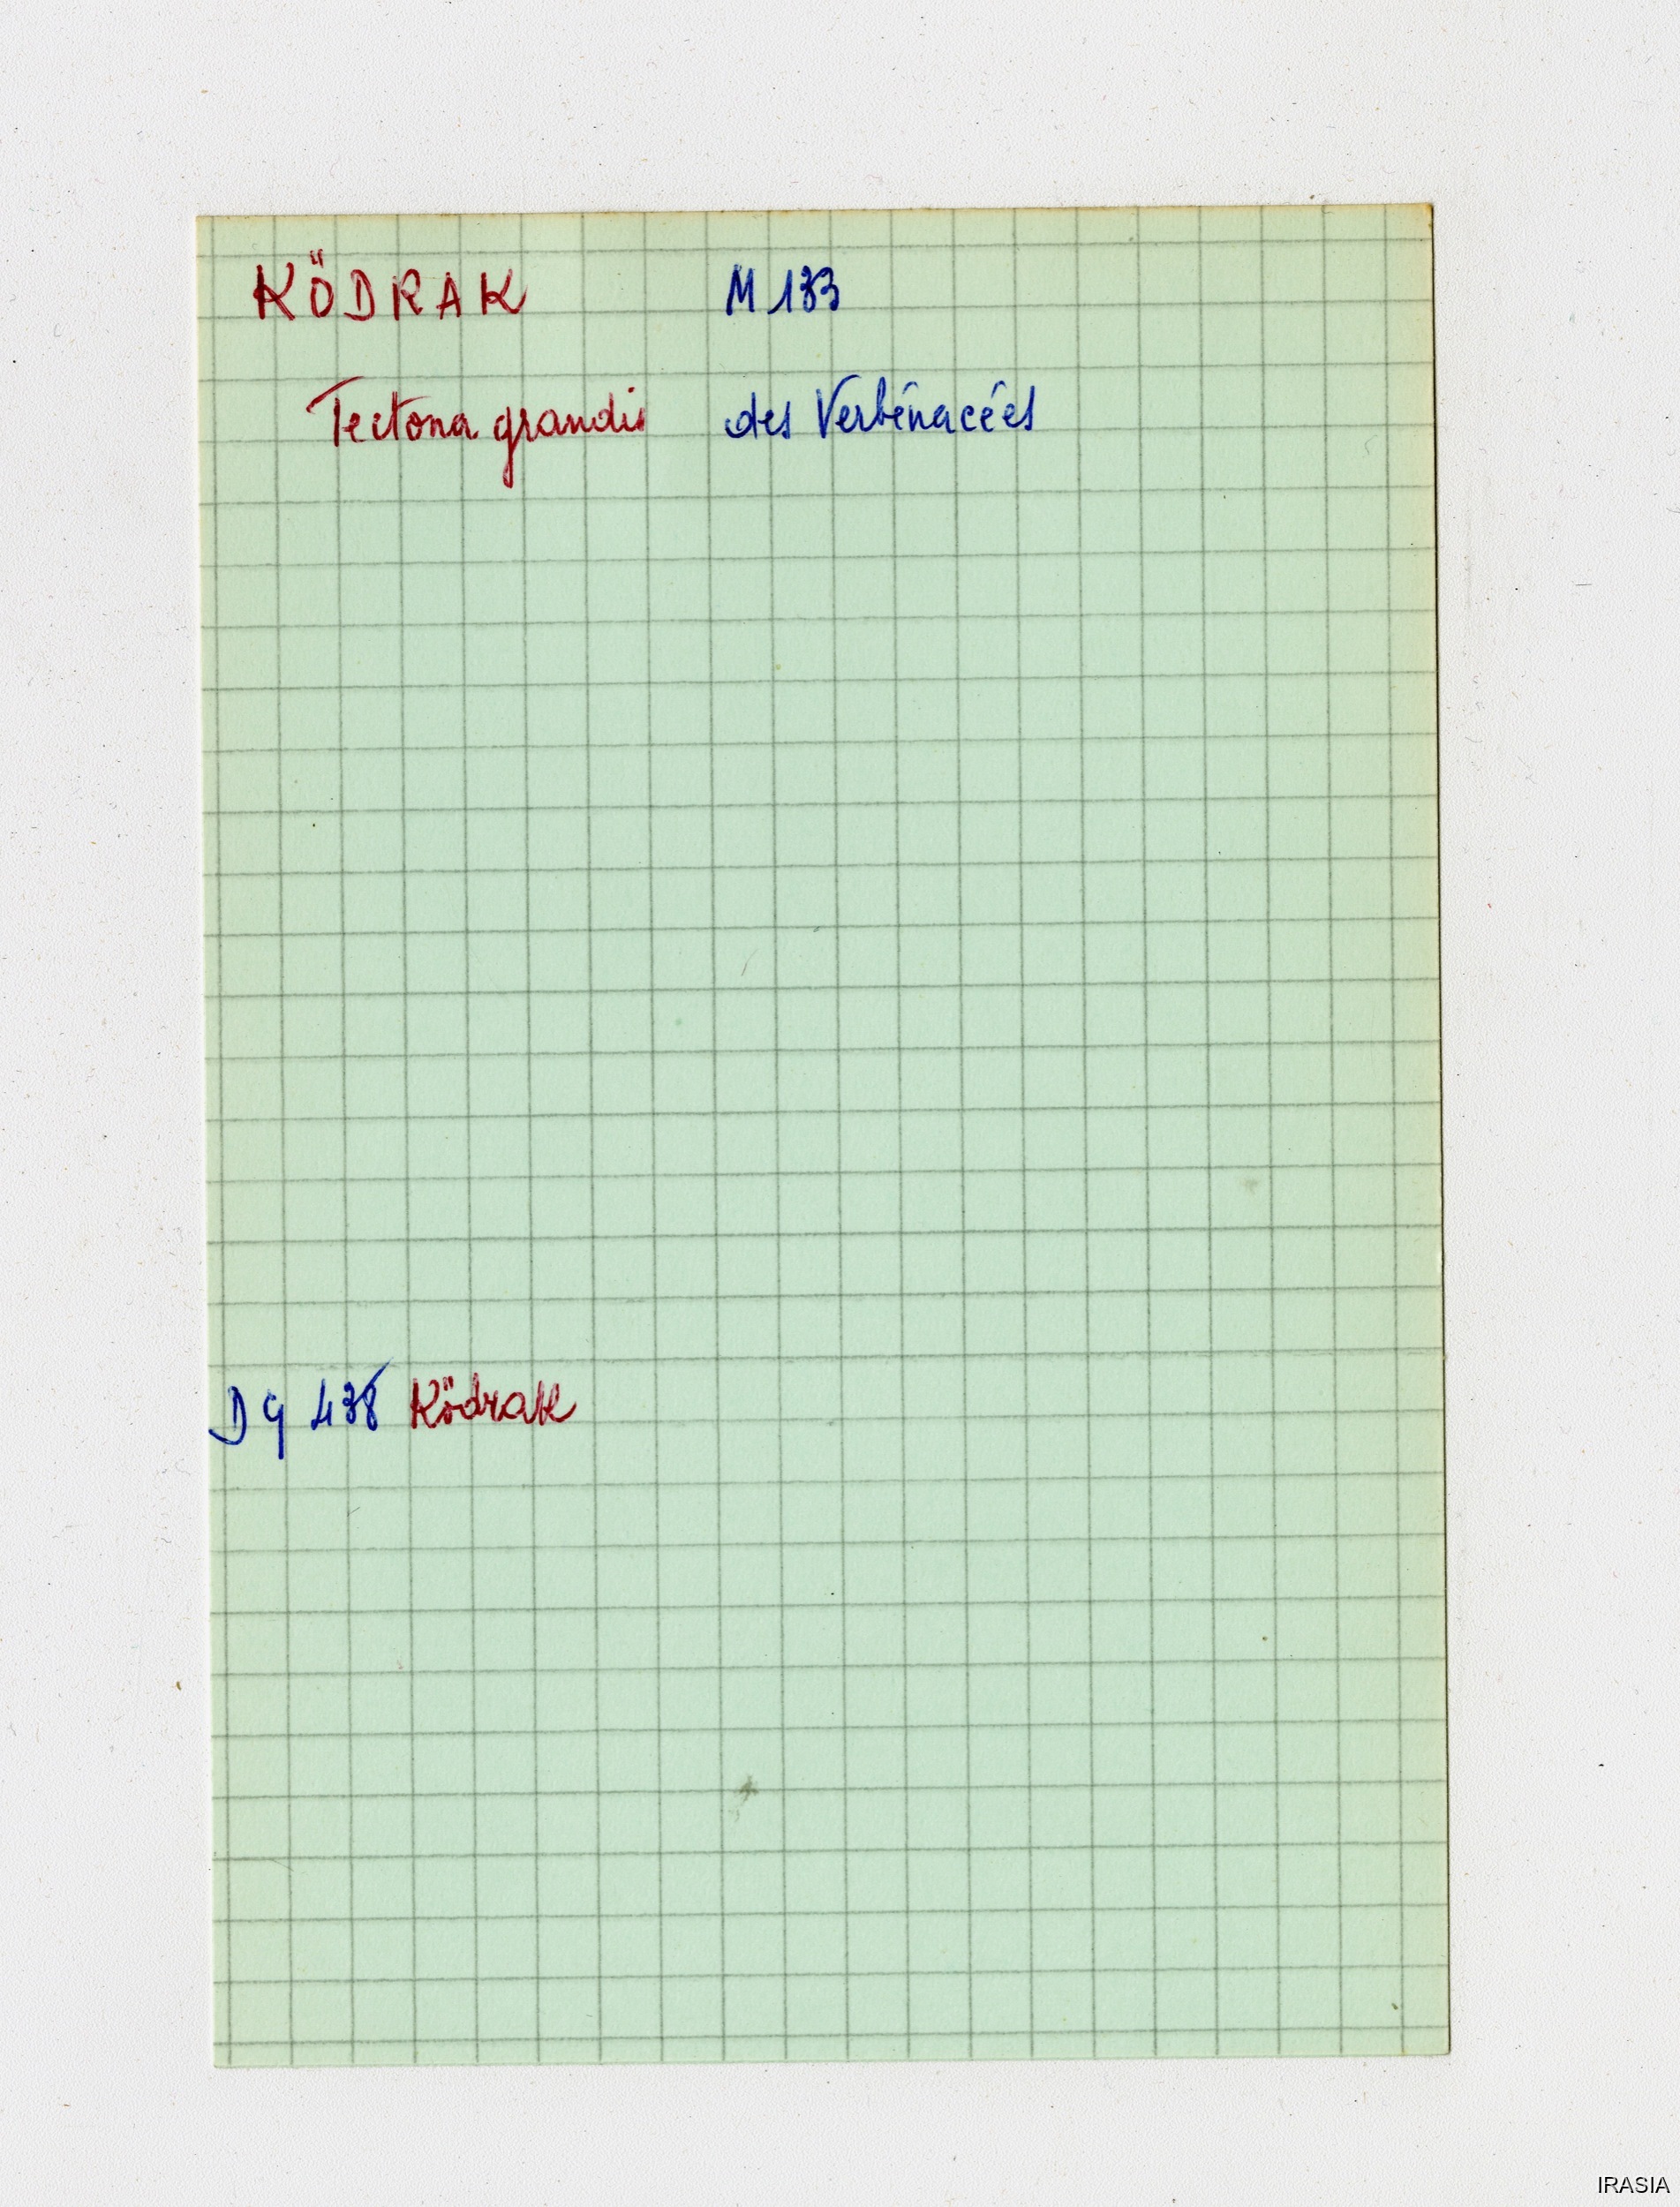 KÖDRAK M 133
Tectona grandis des Verbénacées
DG 438 Ködrak
IRASIA